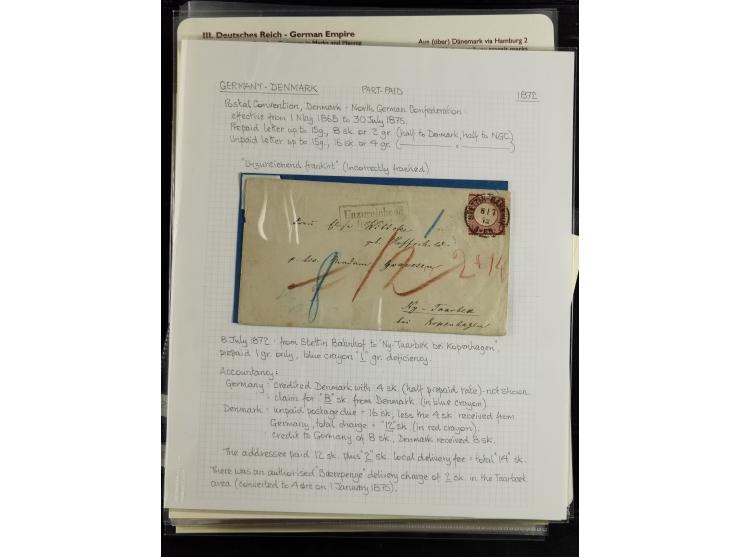 III. Deutsches Reich - German Empire
Aus (über) Dänemark via Hamburg 2
GERMANY - DENMARK PART-PAID 1872
Postal Convention, Denmark - North German Confederation
effective from 1 May 1868 to 30 July 1875.
Prepaid letter up to 15g, 8 sk. or 2 gr. (half to Denmark, half to NGC)
Unpaid letter up to 15g, 16 sk or 4 gr. ( " )
"Unzureichend frankirt" (Incorrectly franked)
Unzureichend
STETTIN BAHNHOF
8/7
72
1
8
12
2 14
Ny-Taarbek
bei Kopenhagen
8 July 1872 - from Stettin Bahnhof to "Ny-Taarbek bei Kopenhagen",
prepaid 1 gr. only, blue crayon "1" gr. deficiency.
Accountancy:
Germany : credited Denmark with 4 sk. (half prepaid rate) - not shown
= claim for "8" sk. from Denmark. (in blue crayon).
Denmark : unpaid postage due = 16 sk, less the 4 sk received from
Germany, total charge = "12" sk. (in red crayon).
credit to Germany of 8 sk., Denmark received 8 sk.
The addressee paid 12 sk. plus "2" sk. local delivery fee = total "14" sk.
There was an authorised "Baerepenge" delivery charge of 2 sk. in the Taarbaek
area (converted to 4 øre on 1 January 1875).